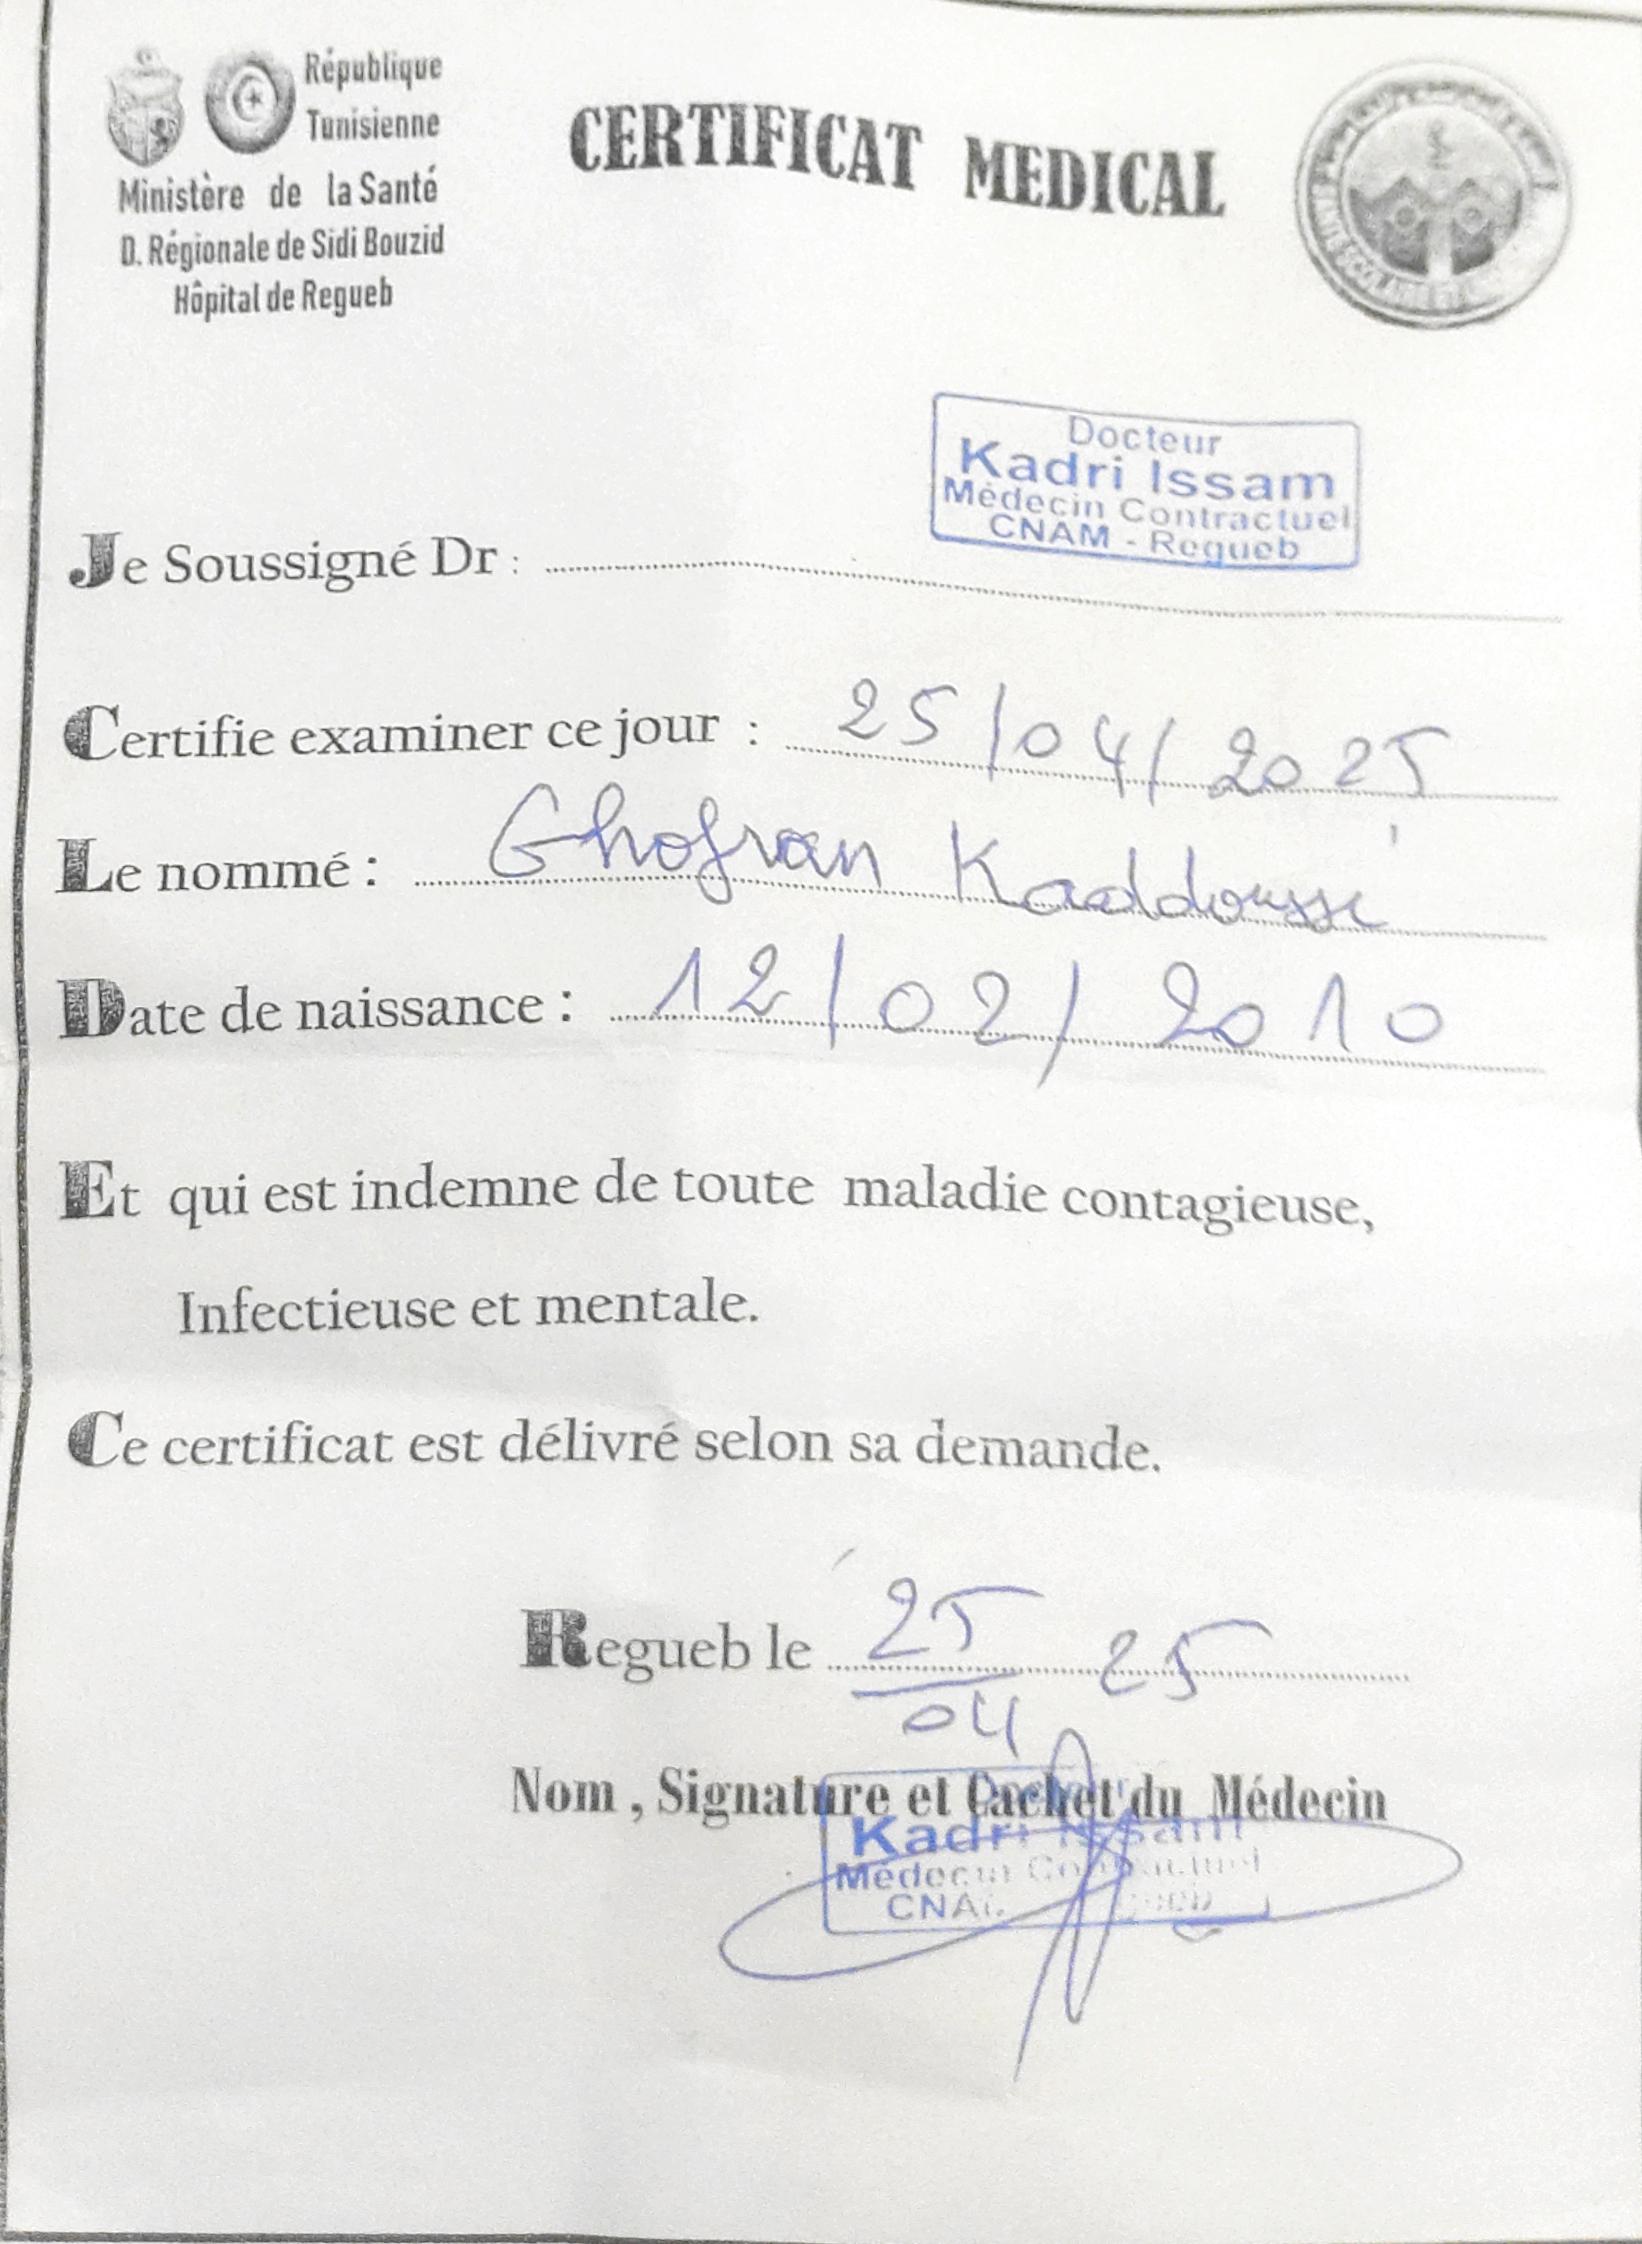 République
Tunisienne
Ministère de la Santé
D. Régionale de Sidi Bouzid
Hôpital de Regueb
CERTIFICAT MEDICAL
Docteur
Kadri Issam
Médecin Contractuel
CNAM - Regueb
Je Soussigné Dr :
Certifie examiner ce jour : 25/04/2025
Le nommé : Ghofran Kaddoussi
Date de naissance : 12/02/2010
Et qui est indemne de toute maladie contagieuse,
Infectieuse et mentale.
Ce certificat est délivré selon sa demande.
Regueb le 25/04 25
Nom , Signature et Cachet du Médecin
Kadri Issam
Médecin Contractuel